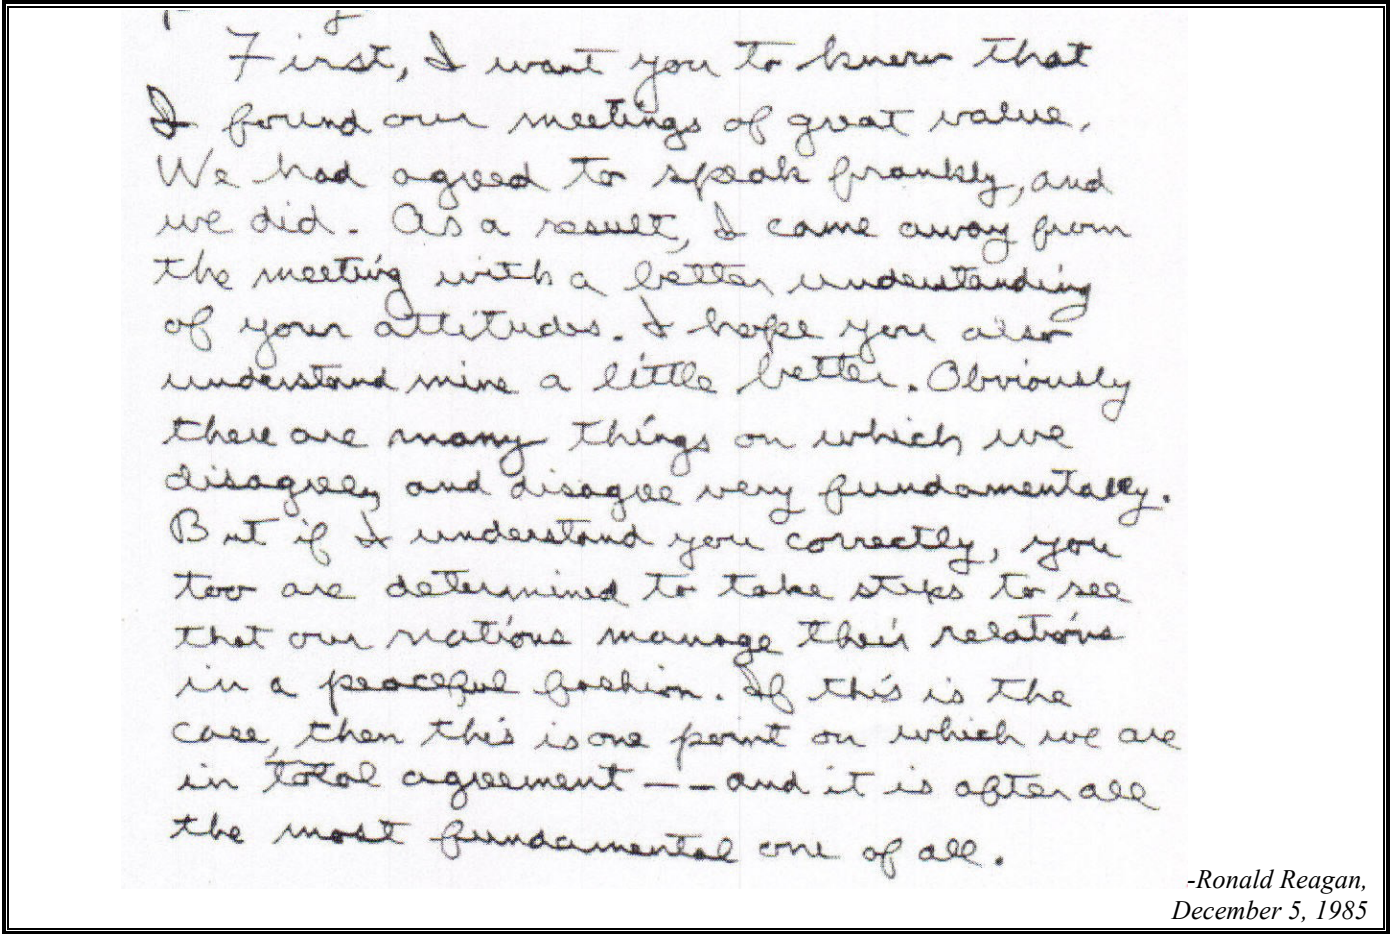 First, I want you to know that
I found our meetings of great value.
We had agreed to speak frankly, and
we did. As a result, I came away from
the meeting with a better understanding
of your attitudes. I hope you also
understand mine a little better. Obviously
there are many things on which we
disagree, and disagree very fundamentally.
But if I understand you correctly, you
too are determined to take steps to see
that our nations manage their relations
in a peaceful fashion. If this is the
case, then this is one point on which we are
in total agreement -- and it is after all
the most fundamental one of all.
-Ronald Reagan,
December 5, 1985